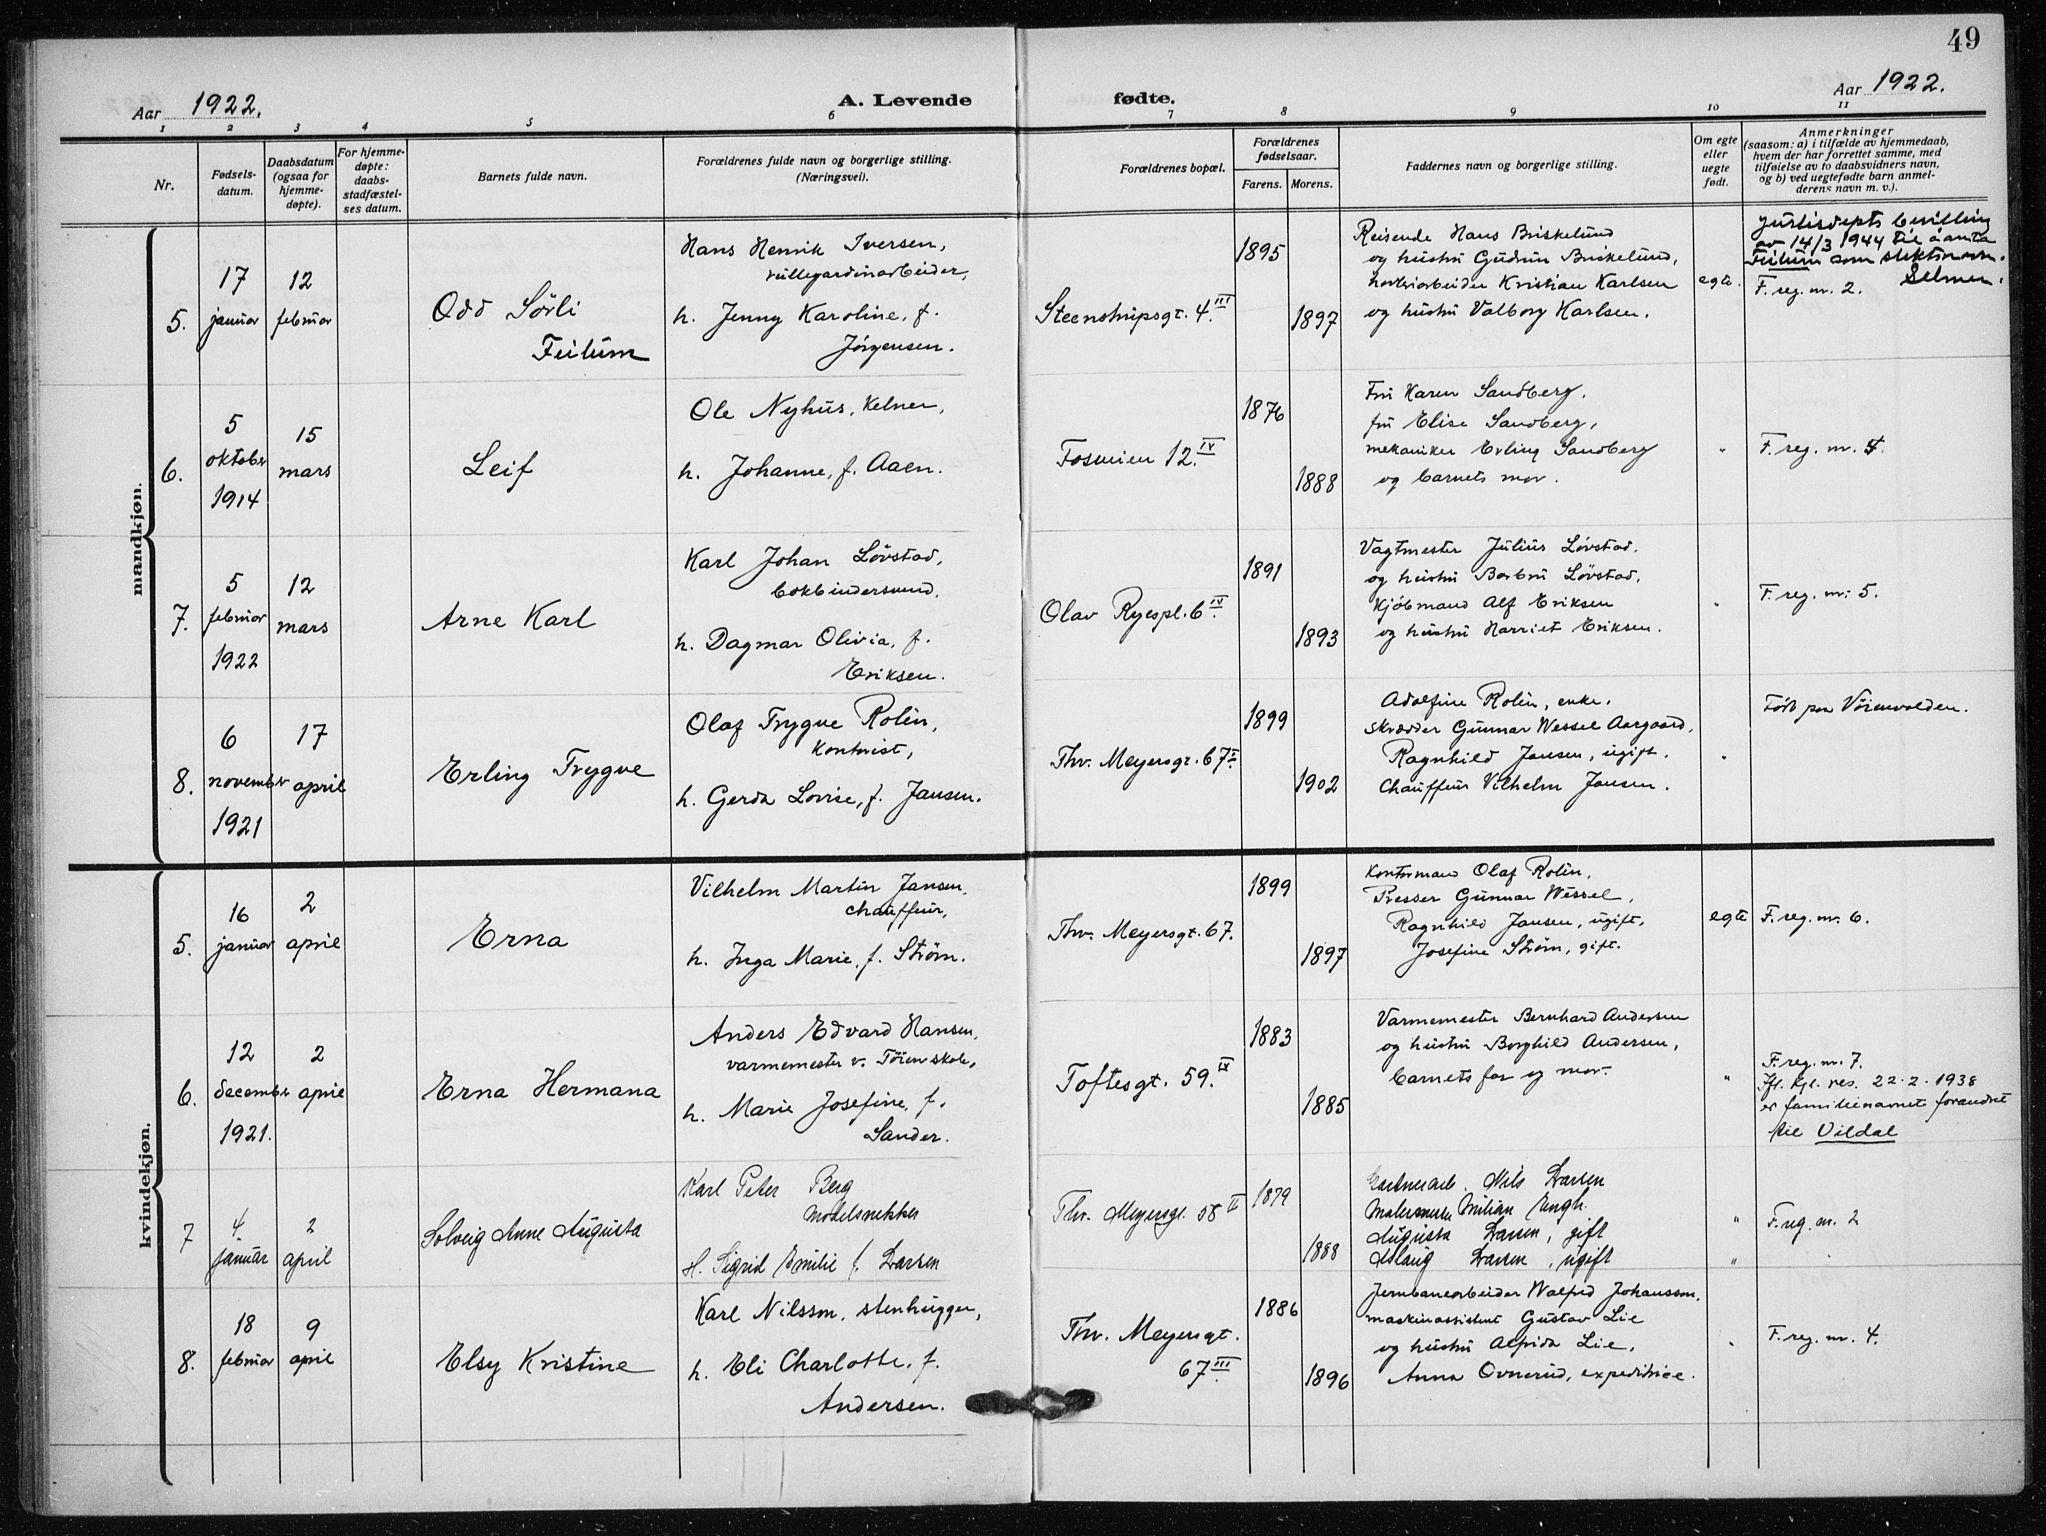 49
Aar 1922.
A. Levende fødte.
Aar 1922.
1 2 3 4 5 6 7 8 9 10 11
Nr.
Fødsels-
datum.
Daabsdatum
(ogsaa for
hjemme-
døpte).
For hjemme-
døpte:
daabs-
stadfæstel-
ses datum.
Barnets fulde navn.
Forældrenes fulde navn og borgerlige stilling.
(Næringsvei).
Forældrenes bopæl.
Forældrenes
fødselsaar.
Farens. Morens.
Faddernes navn og borgerlige stilling.
Om egte
eller
uegte
født.
Anmerkninger
(saasom: a) i tilfælde av hjemmedaab,
hvem der har forrettet samme, med
tilføielse av to daabsvidners navn,
og b) ved uegtefødte barn anmel-
derens navn m. v.).
mandkjøn.
5.
17
januar
12
februar
Odd Sørli
Feilum
Hans Henrik Iversen,
rullegardinarbeider,
h. Jenny Karoline, f.
Jörgensen.
Steenstrupsgt. 4 III
1895
1897
Reisende Hans Briskelund
og hustru Gudrun Briskelund,
Kristian Karlsen
og hustru Valborg Karlsen.
egte.
Justisdepts bevilling
av 14/3 1944 til å anta
Feilum som slektsnavn.
Selmer.
F. reg. nr. 2.
6.
5
oktober
1914
15
mars
Leif
Ole Nyhus, kelner,
h. Johanne, f. Aaen.
Fosveien 12 IV
1876
1888
Fru Karen Sandberg,
fru Elise Sandberg,
mekaniker Erling Sandberg
og barnets mor.
"
F. reg. nr.
7.
5
februar
1922
12
mars
Arne Karl
Karl Johan Lövstad,
bokbindersvend,
h. Dagmar Olivia, f.
Eriksen.
Olav Ryespl. 6 IV
1891
1893
Vagtmester Julius Lövstad,
og hustru Borbru Lövstad,
Kjöbmand Alf Eriksen
og hustru Harriet Eriksen.
"
F. reg. nr. 5.
8.
6
november
1921
17
april
Erling Trygve
Olaf Trygve Rolin,
Kontorist,
h. Gerda Lovise, f. Jansen.
Thv. Meyersgt. 67 I
1899
1902
Adolfine Rolin, enke,
Skrædder Gunnar Wessel Aargaard,
Ragnhild Jansen, ugift.
Chauffeur Vilhelm Jansen.
"
Født paa Vöienvolden.
kvindekjøn.
5.
16
januar
2
april
Erna
Vilhelm Martin Jansen,
chauffeur,
h. Inga Marie, f. Ström.
Thv. Meyersgt. 67.
1899
1897
Kontormand Olaf Rolin,
Presser Gunnar Wessel,
Ragnhild Jansen, ugift,
Josefine Ström, gift.
egte
F. reg. nr. 6.
6.
12
december
1921.
2
april
Erna Hermana
Anders Edvard Hansen,
varmemester v. Töien skole,
h. Marie Josefine, f.
Sander.
Toftesgt. 59. IV
1883
1885
Varmemester Bernhard Andersen
og hustru Borghild Andersen,
barnets far og mor.
"
F. reg. nr. 7.
Ifl. kgl. res. 22-2-1938
er familienavnet forandret
til Vildal
7
4
januar
2
april
Solveig Anne Augusta
Karl Peter Berg
modelsnekker
H. Sigrid Emilie f. Larsen
Thv. Meyersgt. 58 II
1879
1888
Gartnerarb. Nils Larsen
Augusta Larsen, gift
Aslaug Larsen, ugift
"
"
F. reg. nr. 2
8.
18
februar
9
april
Elsy Kristine
Karl Nilsson, stenhugger,
h. Eli Charlotte, f.
Andersen.
Thv. Meyersgt.
67 III
1886
1896
Jernbanearbeider Walfrid Johansson,
maskinassistent Gustav Lie
og hustru Alfrida Lie,
Anna Ovnerud, expeditrice.
"
F. reg. nr. 4.